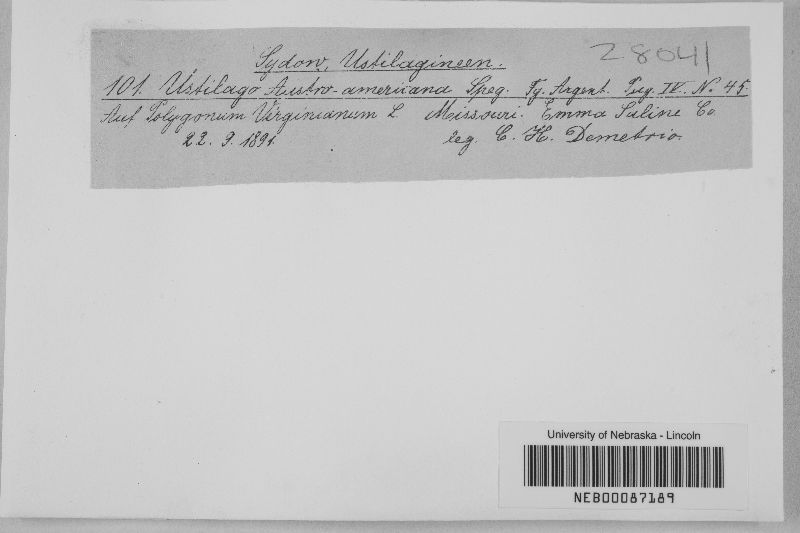 28041
Sydow, Ustilagineen.
101. Ustilago Austro-americana Speg. Fg. Argent. Pug. IV. No. 45.
Auf Polygonum Virginianum L Missouri. Emma Saline Co
22. 9. 1891 leg. C. H. Demetrio.
University of Nebraska - Lincoln
NEB00087189